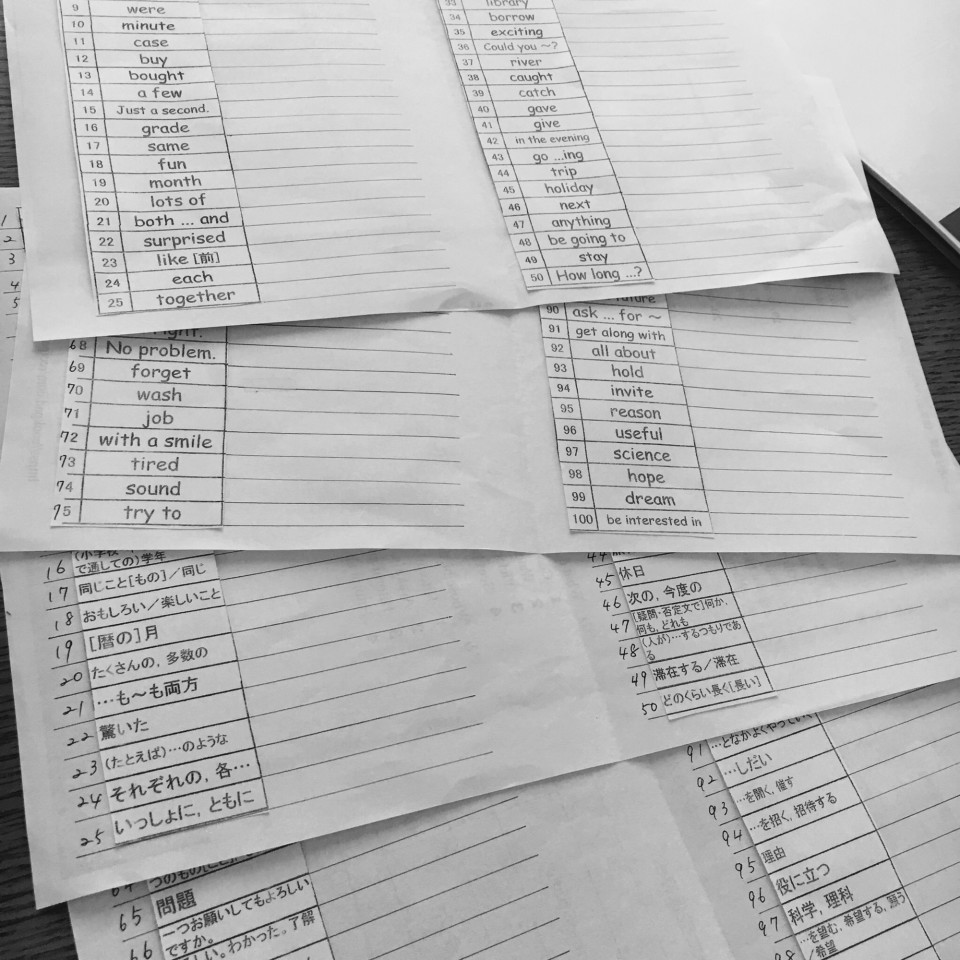 9 were
10 minute
11 case
12 buy
13 bought
14 a few
15 Just a second.
16 grade
17 same
18 fun
19 month
20 lots of
21 both ... and
22 surprised
23 like [前]
24 each
25 together
33 library
34 borrow
35 exciting
36 Could you ～?
37 river
38 caught
39 catch
40 gave
41 give
42 in the evening
43 go ...ing
44 trip
45 holiday
46 next
47 anything
48 be going to
49 stay
50 How long ...?
1
2
3
4
5
68 No problem.
69 forget
70 wash
71 job
72 with a smile
73 tired
74 sound
75 try to
90 ask ... for ～
91 get along with
92 all about
93 hold
94 invite
95 reason
96 useful
97 science
98 hope
99 dream
100 be interested in
16 で通しての)学年
17 同じこと[もの]／同じ
18 おもしろい／楽しいこと
19 [暦の]月
20 たくさんの, 多数の
21 …も～も両方
22 驚いた
23 (たとえば)…のような
24 それぞれの, 各…
25 いっしょに, ともに
44
45 休日
46 次の, 今度の
47 [疑問・否定文で]何か,
何も, どれも
48 (人が)…するつもりであ
る
49 滞在する／滞在
50 どのくらい長く[長い]
65 問題
66 一つお願いしてもよろしい
ですか。
わかった。了解
91 …となかよくやって
92 …しだい
93 …を開く, 催す
94 …を招く, 招待する
95 理由
96 役に立つ
97 科学, 理科
98 …を望む, 希望する, 願う
／希望